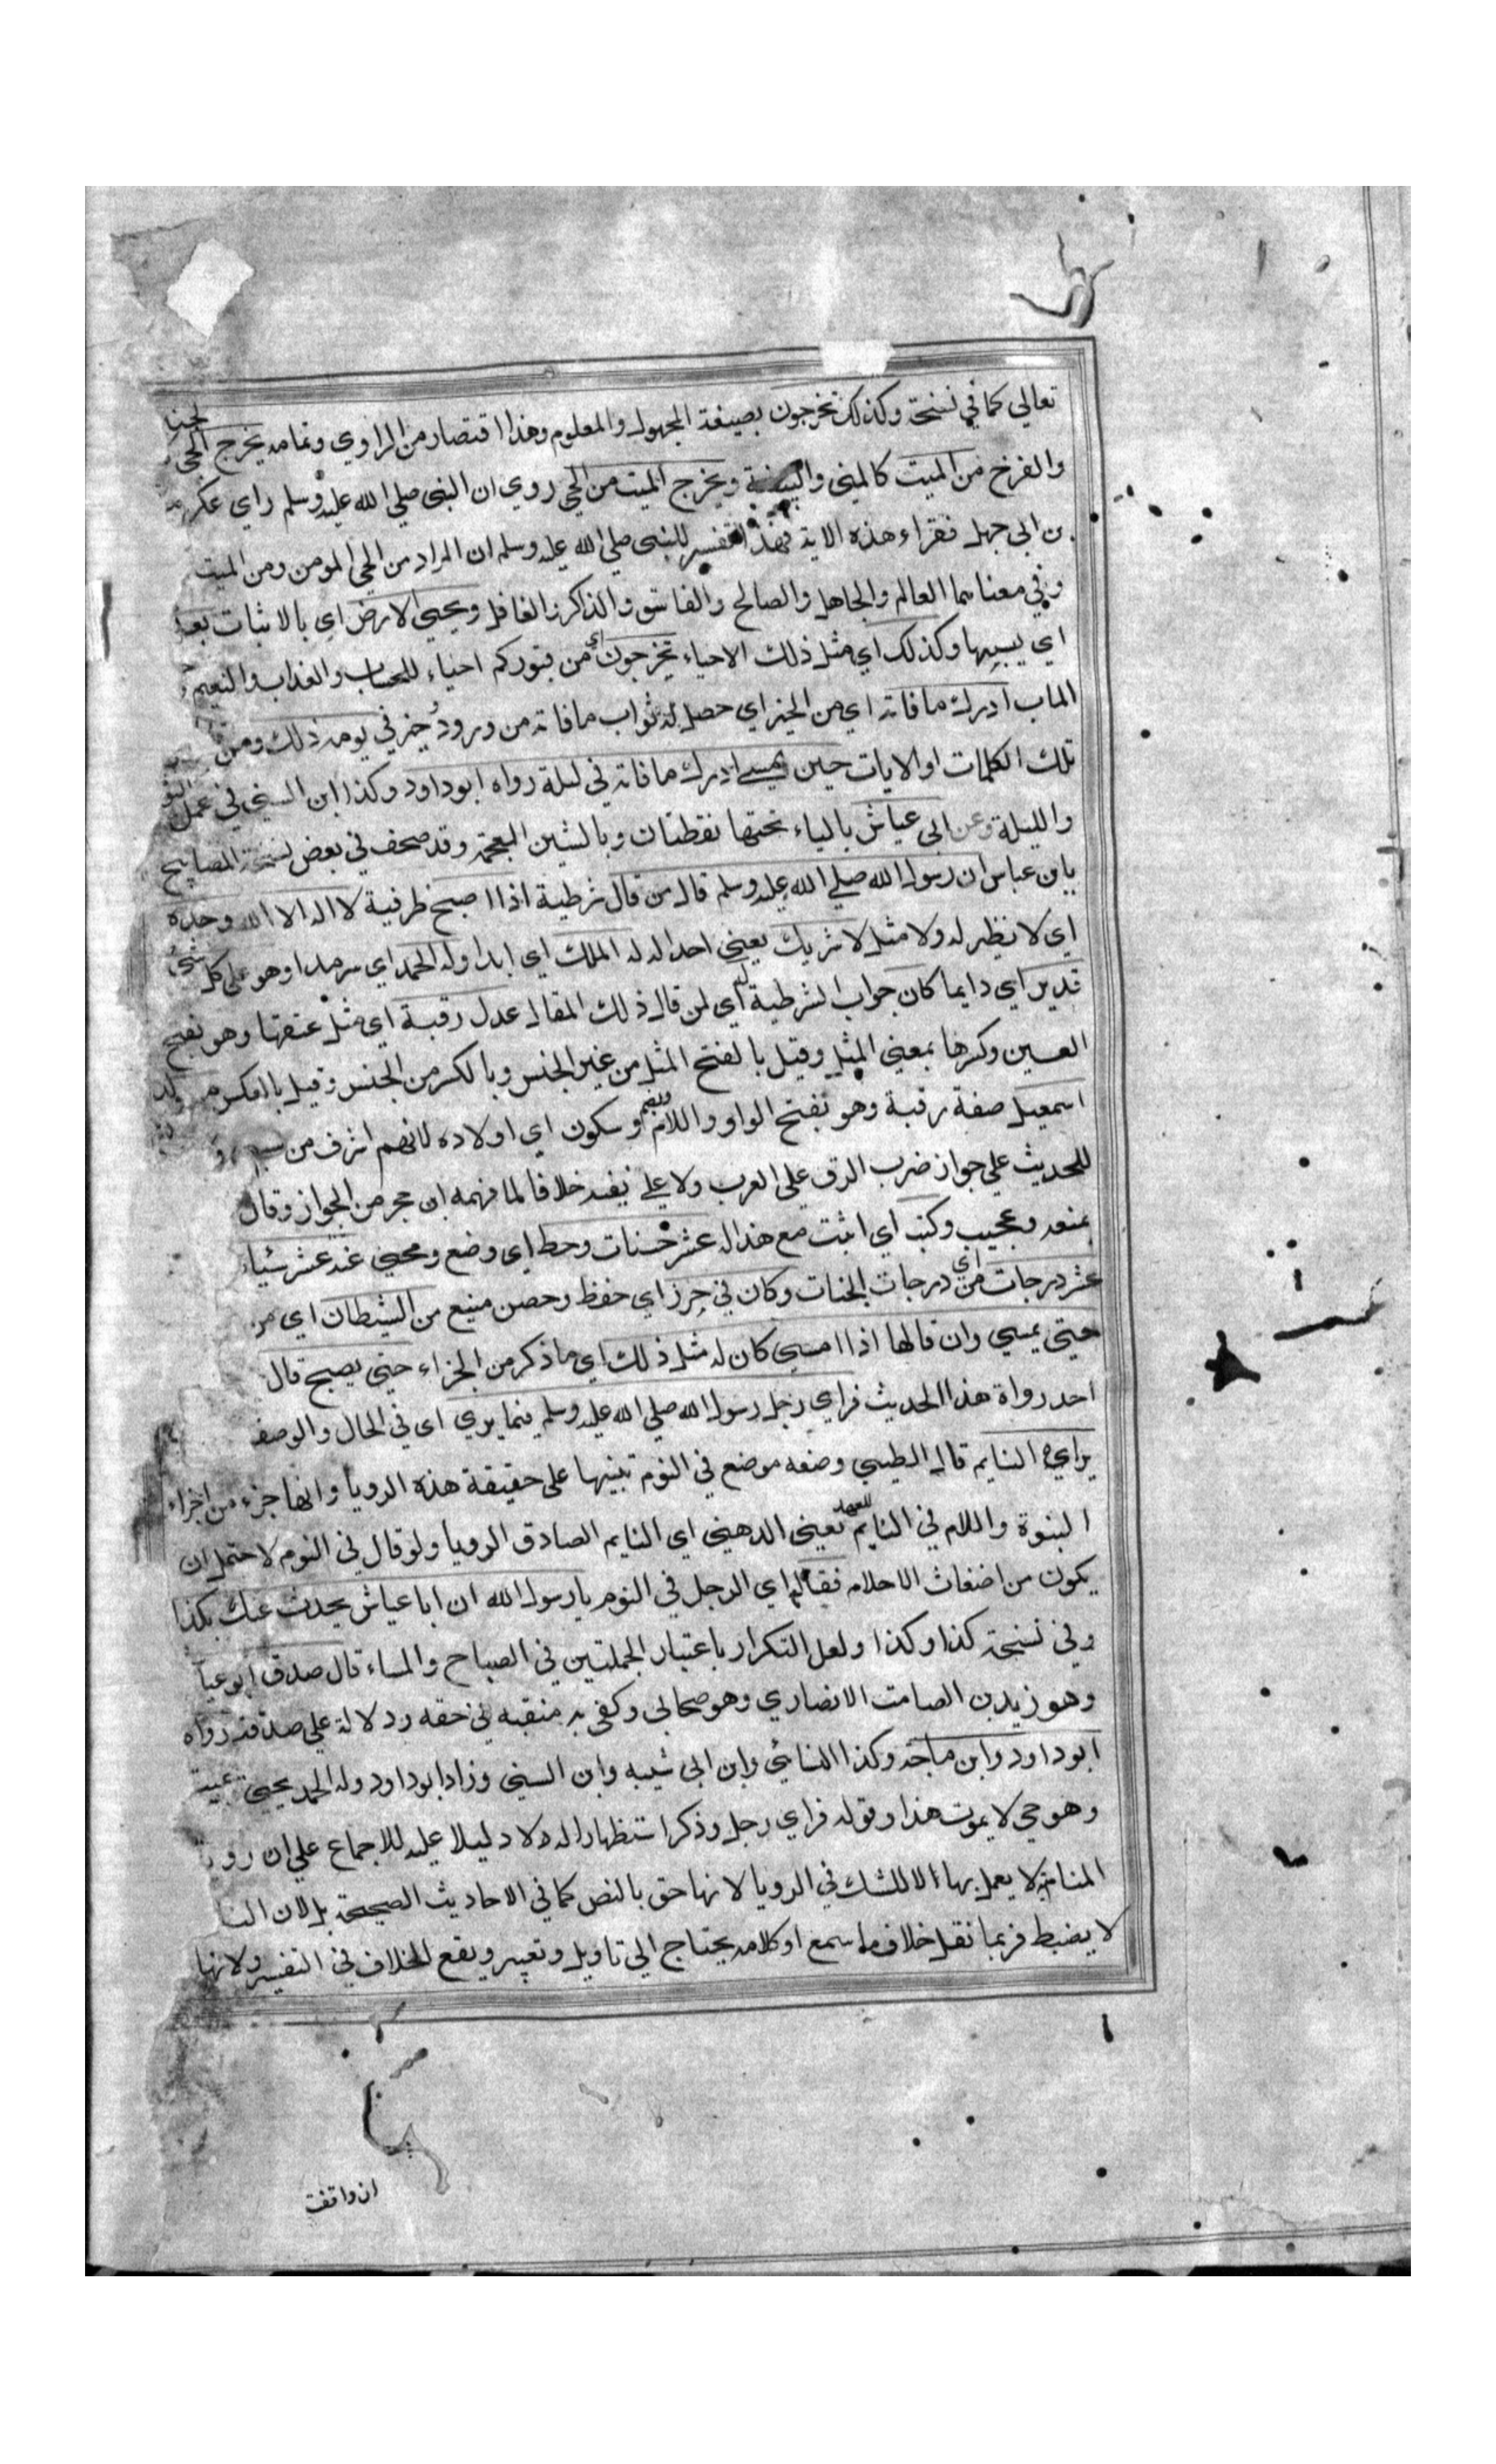 تعالي كما في نسخة وكذلك تخرجون بصيغة المجهول والمعلوم وهذا اقتصار من الراوي وتمامه يخرج الحي
والفرخ من الميت كالمني والبيضة ويخرج الميت من الحي روي ان النبي صلي الله عليه وسلم راي عكرمه
بن ابي جهل فقراء هذه الاية فهذا تفسير للنبي صلي الله عليه وسلم ان المراد من الحي المومن ومن الميت
وفي معناهما العالم والجاهل والصالح والفاسق والذاكر والغافل ويحيي الارض اي بالانبات بعد
اي يبسها وكذلك اي مثل ذلك الاحياء تخرجون اي من قبوركم احياء للحساب والعذاب والنعيم
الماب ادرك ما فاته اي من الخير اي حصل له ثواب ما فاته من ورود خير في يومه ذلك ومن
تلك الكلمات او الايات حين يمسي ادرك ما فاته في ليلة رواه ابو داود وكذا ابن السني في عمل
والليلة وعن ابي عياش بالياء تحتها نقطتان وبالشين المعجمة وقد صحف في بعض نسخ المصابيح
بابن عباس ان رسول الله صلي الله عليه وسلم قال من قال شرطية اذا اصبح ظرفية لا اله الا الله وحده
اي لا نظير له ولا مثل لا شريك يعني احد له له الملك اي ابدا وله الحمد اي سرمدا وهو علي كل شيء
قدير اي دايما كان جواب الشرطية له اي لمن قال ذلك المقال عدل رقبة اي مثل عتقها وهو بفتح
العين وكسرها بمعني المثل وقيل بالفتح المثل من غير الجنس وبالكسر من الجنس وقيل بالعكس من ولد
اسمعيل صفة رقبة وهو بفتح الواو واللام وبضم وسكون اي اولاده لانهم اشرف من
للحديث علي جواز ضرب الرق علي العرب ولا علي نفيه خلافا لما فهمه ابن حجر من الجواز وقال
بمنعه وعجيب وكتب اي اثبت مع هذا له عشر حسنات وحط اي وضع ومحي عنه عشر سيئا
عشر درجات اي من درجات الجنات وكان في حرز اي حفظ وحصن منيع من الشيطان اي من
حتي يمسي وان قالها اذا امسي كان له مثل ذلك اي ما ذكر من الجزاء حتي يصبح قال
احد رواة هذا الحديث فراي رجل رسول الله صلي الله عليه وسلم فيما يري اي في الحال والوصف
يراي النايم قال الطيبي وضعه موضع في النوم تنبيها علي حقيقة هذه الرويا وانها جزء من اجزاء
النبوة واللام في النايم للعهد يعني الذهني اي النايم الصادق الرويا ولو قال في النوم لاحتمل ان
يكون من اضغاث الاحلام فقال اي الرجل في النوم يا رسول الله ان ابا عياش يحدث عنك بكذا
وفي نسخة كذا وكذا ولعل التكرار باعتبار الجملتين في الصباح والمساء قال صدق ابو عيا
وهو زيد بن الصامت الانصاري وهو صحابي وكفي به منقبه في حقه ودلالة علي صدقه رواه
ابو داود وابن ماجه وكذا النسائي وابن ابي شيبه وابن السني وزاد ابو داود وله الحمد يحيي
وهو حي لا يموت هذا وقوله فراي رجل وذكر استظهارا له لا دليلا عليه للاجماع علي ان
المنام لا يعمل بها لا للشك في الرويا لانها حق بالنص كما في الاحاديث الصحيحة بل لان النا
لا يضبط فربما نقل خلاف ما سمع او كلامه يحتاج الي تاويل وتعبير ويقع الخلاف في التفسير ولانها
ان واقفت